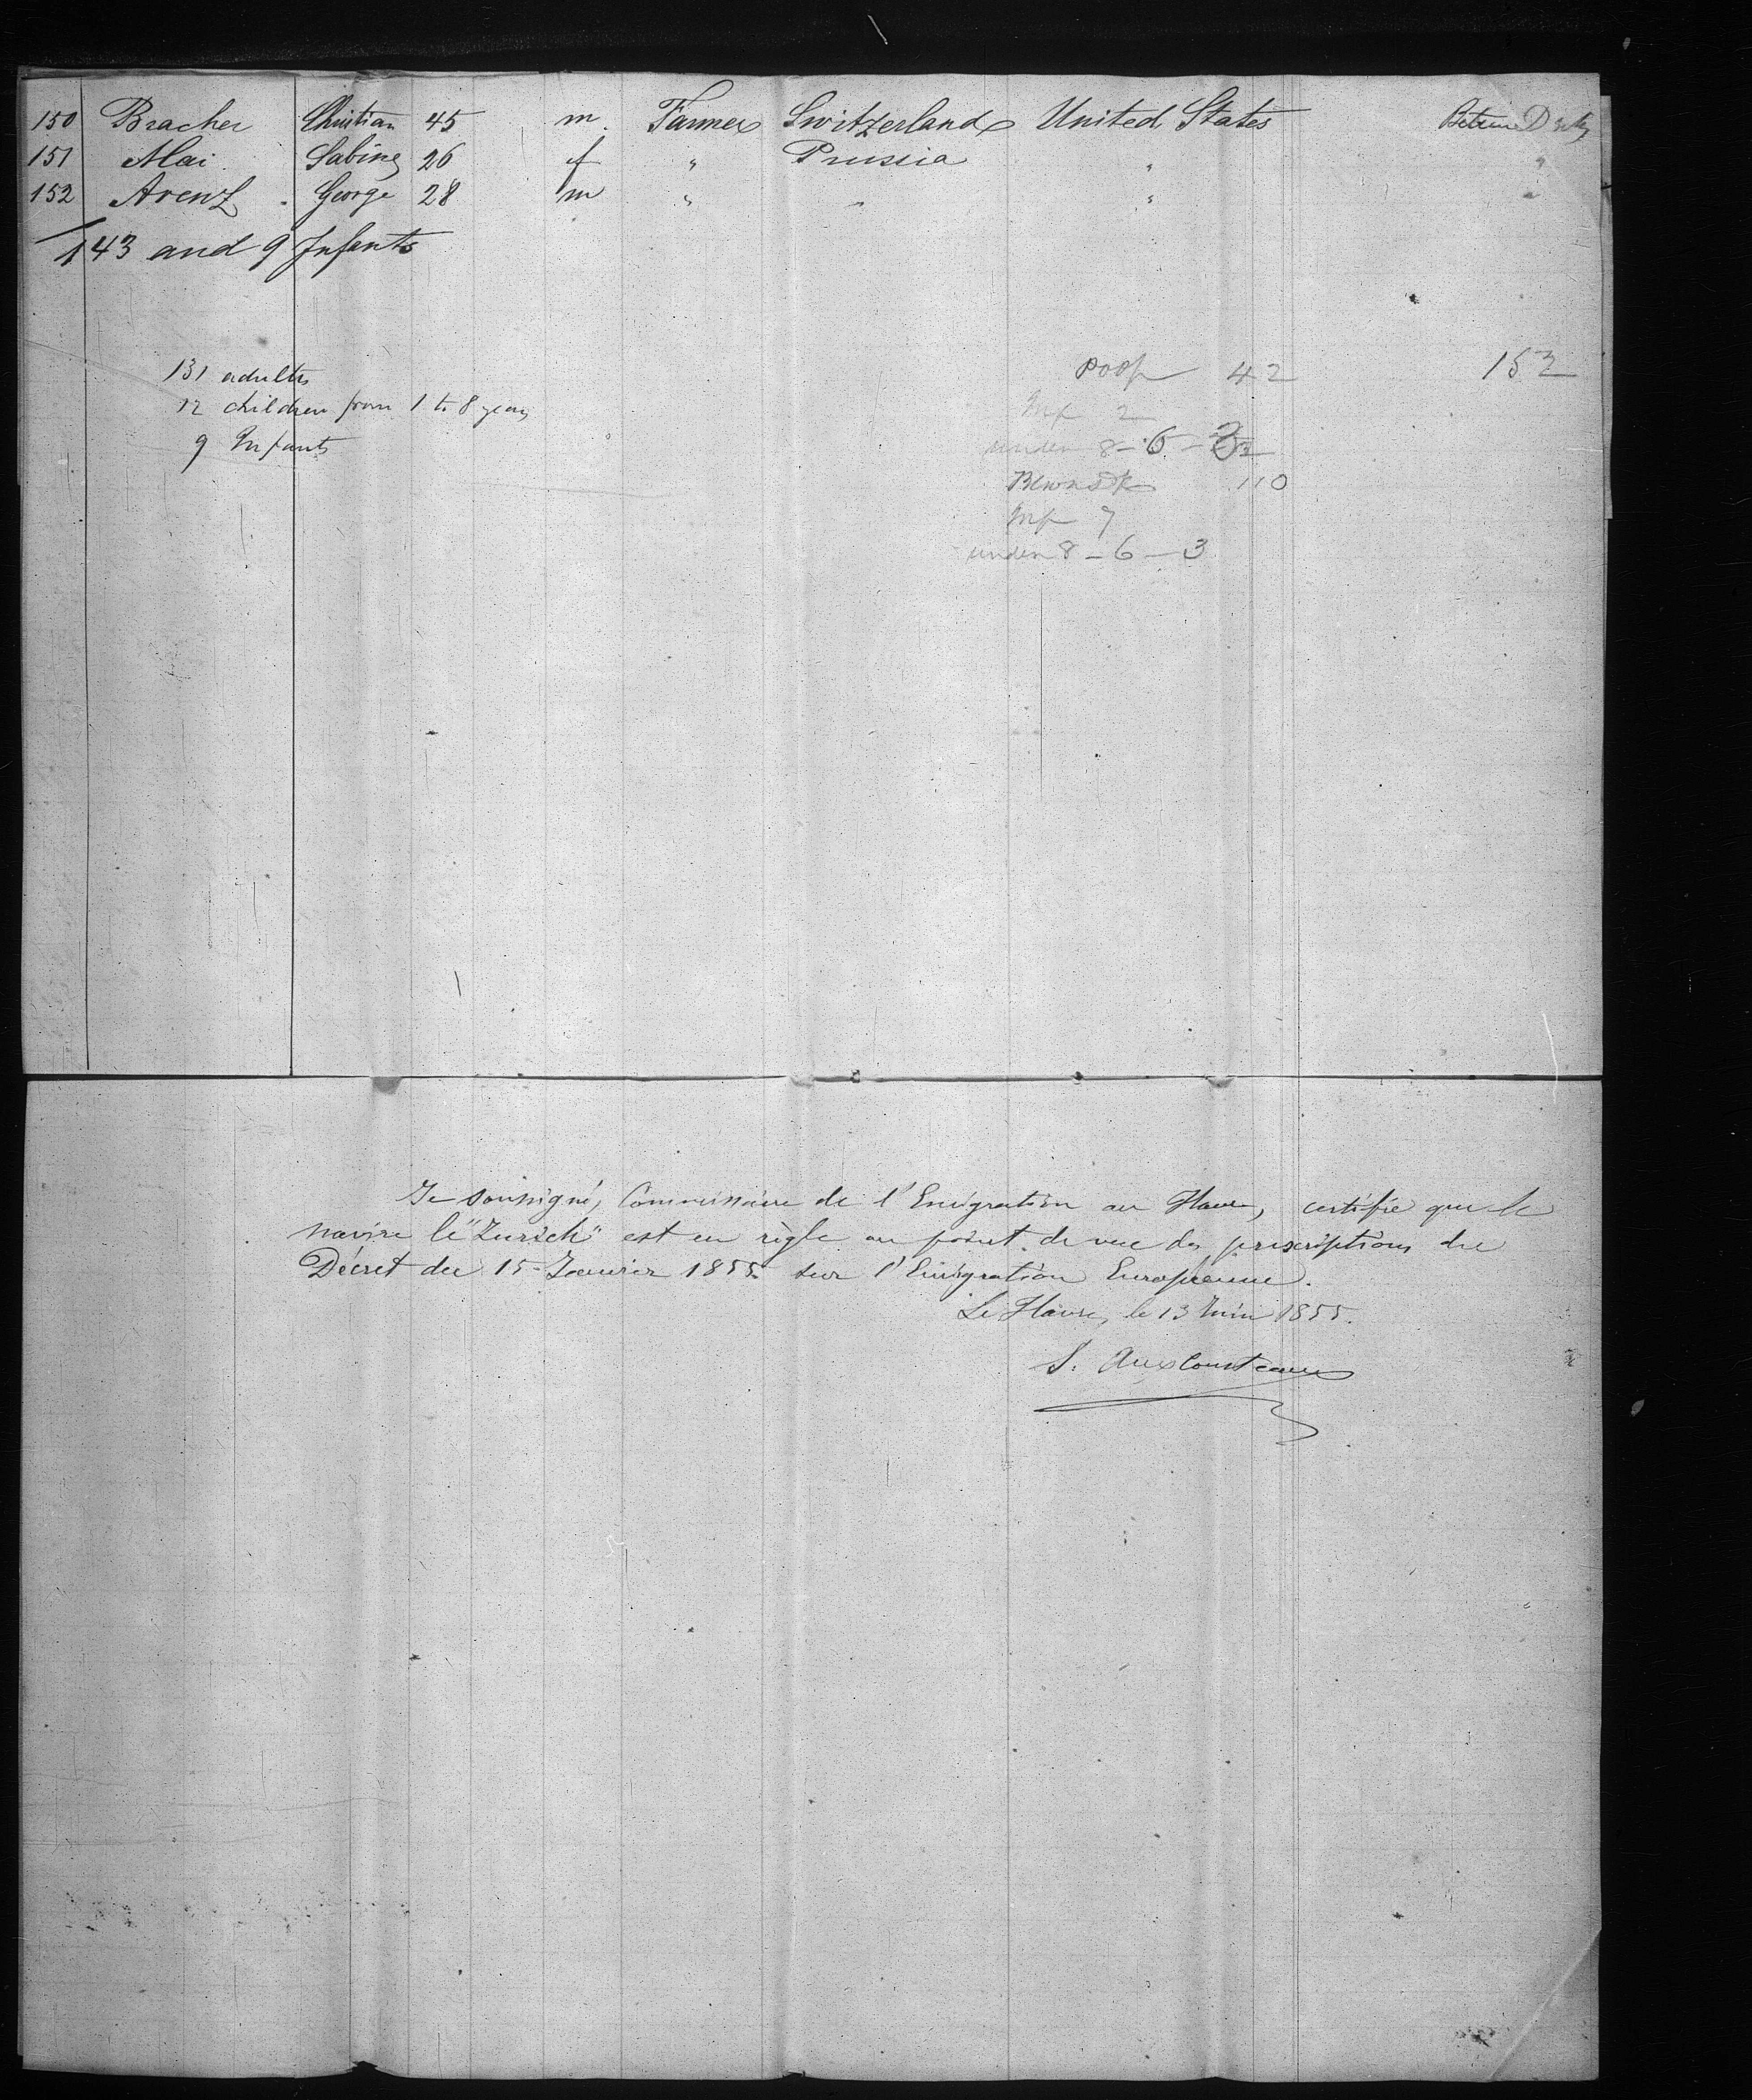 150 Bracher Christian 45 m. Farmer Switzerland United States Between Decks
151 Mai Sabine 26 f " Prussia " "
152 Arenz George 28 m " " " "
143 and 9 Infants
131 adults
12 children from 1 to 8 years
9 Infants
Poop 42 152
Inf 2
under 8 - 6 -
110
Inf 7
under 8 - 6 - 3
Je soussigné, Commissaire de l'Emigration au Havre, certifie que le
navire le "Zurich" est en règle au point de vue des prescriptions du
Décret du 15 Janvier 1855 sur l'Emigration Européenne.
Le Havre, le 13 Juin 1855.